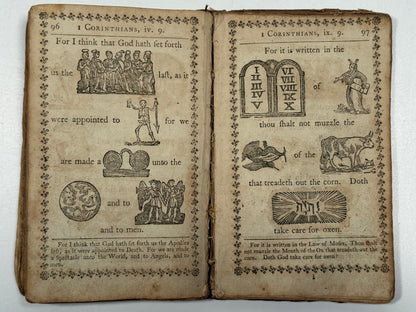 96 1 CORINTHIANS, iv. 9.
For I think that God hath set forth
us the last, as it
were appointed to for we
are made a unto the
and to
and to men.
For I think that God hath set forth us the Apostles
last, as it were appointed to Death. For we are made
a Spectacle unto the World, and to Angels, and to
men.
1 CORINTHIANS, ix. 9. 97
For it is written in the
I II III IV V
VI VII VIII IX X
of
thou shalt not muzzle the
of the
that treadeth out the corn. Doth
יהוה
take care for oxen.
For it is written in the Law of Moses, Thou shalt
not muzzle the Mouth of the Ox that treadeth out the
corn. Doth God take care for oxen?